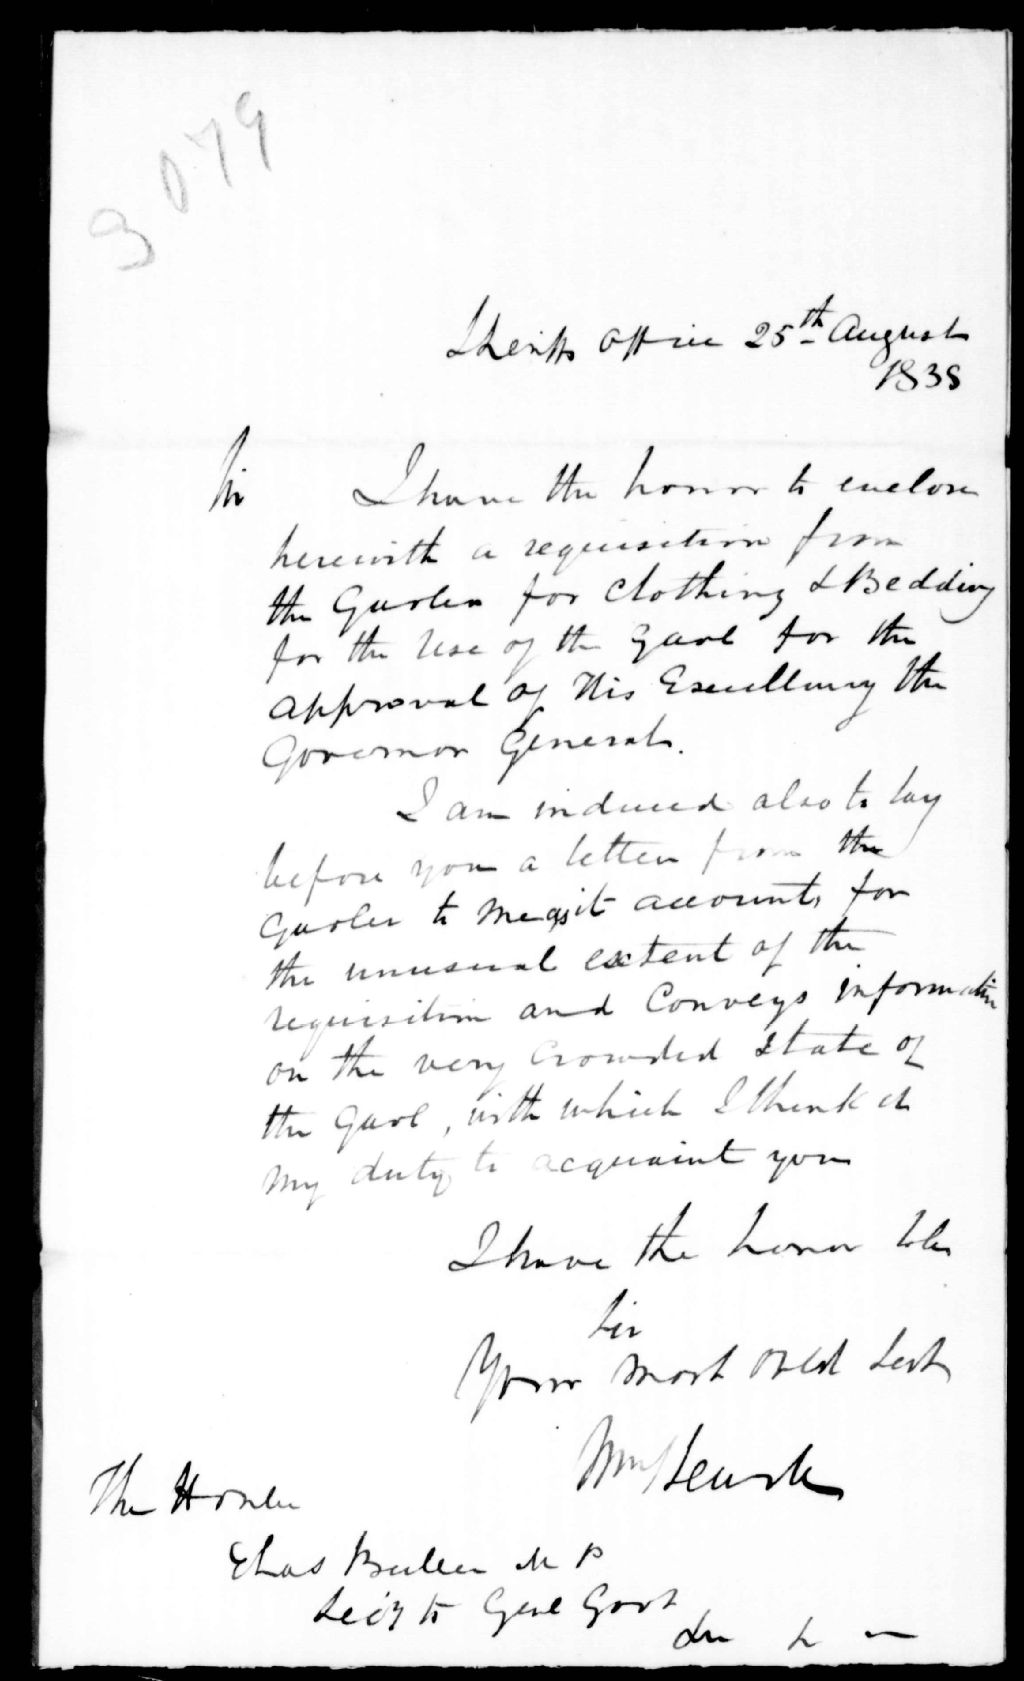 3079
Sheriffs Office 25th August
1838
Sir I have the honor to enclose
herewith a requisition from
the Gaoler for Clothing & Bedding
for the Use of the Gaol for the
Approval of His Excellency the
Governor General.
I am induced also to lay
before you a letter from the
Gaoler to me as it accounts for
the unusual extent of the
requisition and Conveys information
on the very Crowded State of
the Gaol, with which I think it
my duty to acquaint you
I have the honor to be
Sir
Your most Obed Servt
Wm
The Honble
Chas Buller M P
Secy to Genl Govt